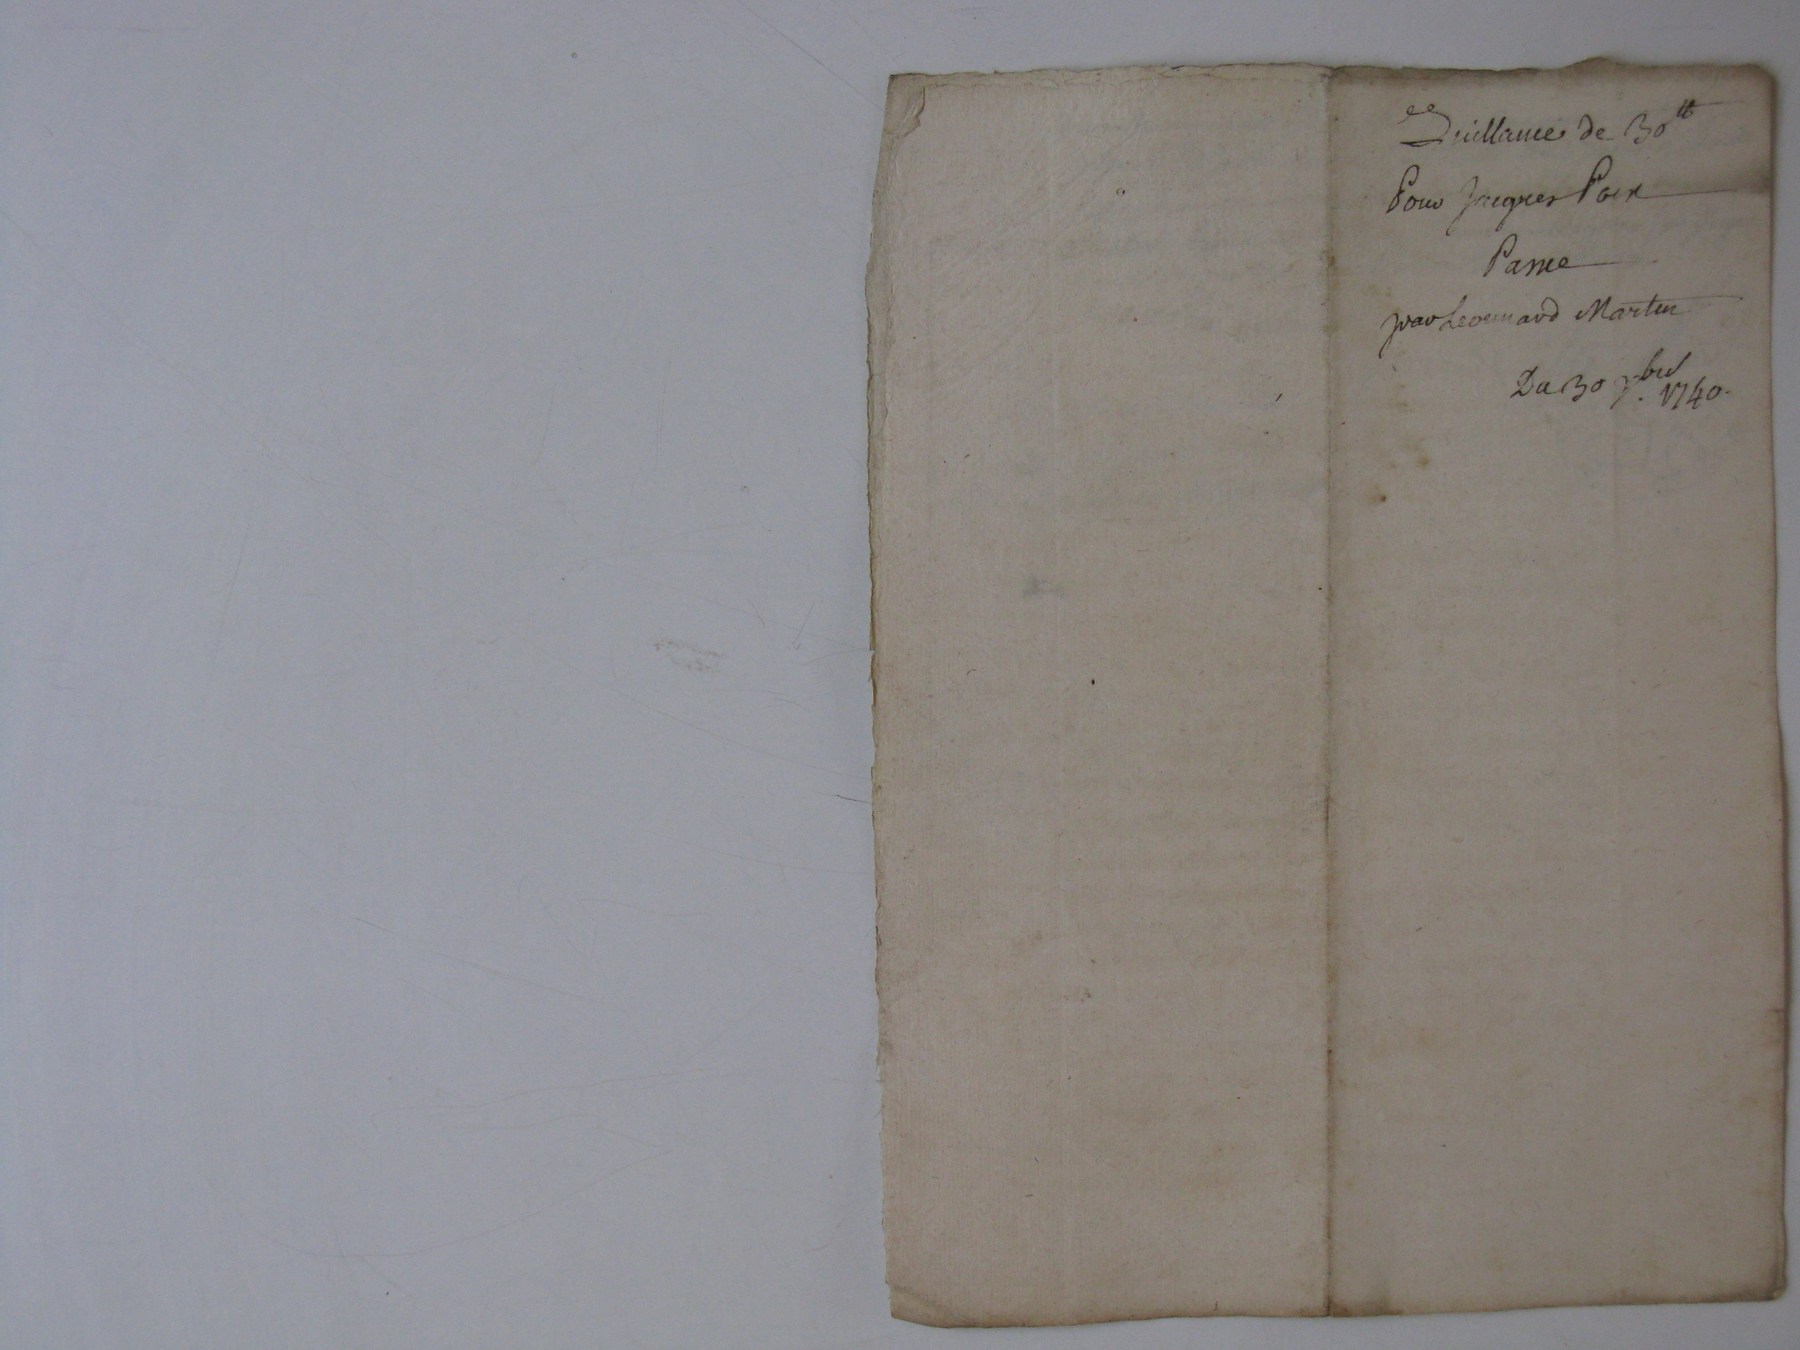 Quittance de 30ᵗᵗ
Pour Jacques Poix
Passée
par Leonnard Martin
Du 30 7.bre 1740.